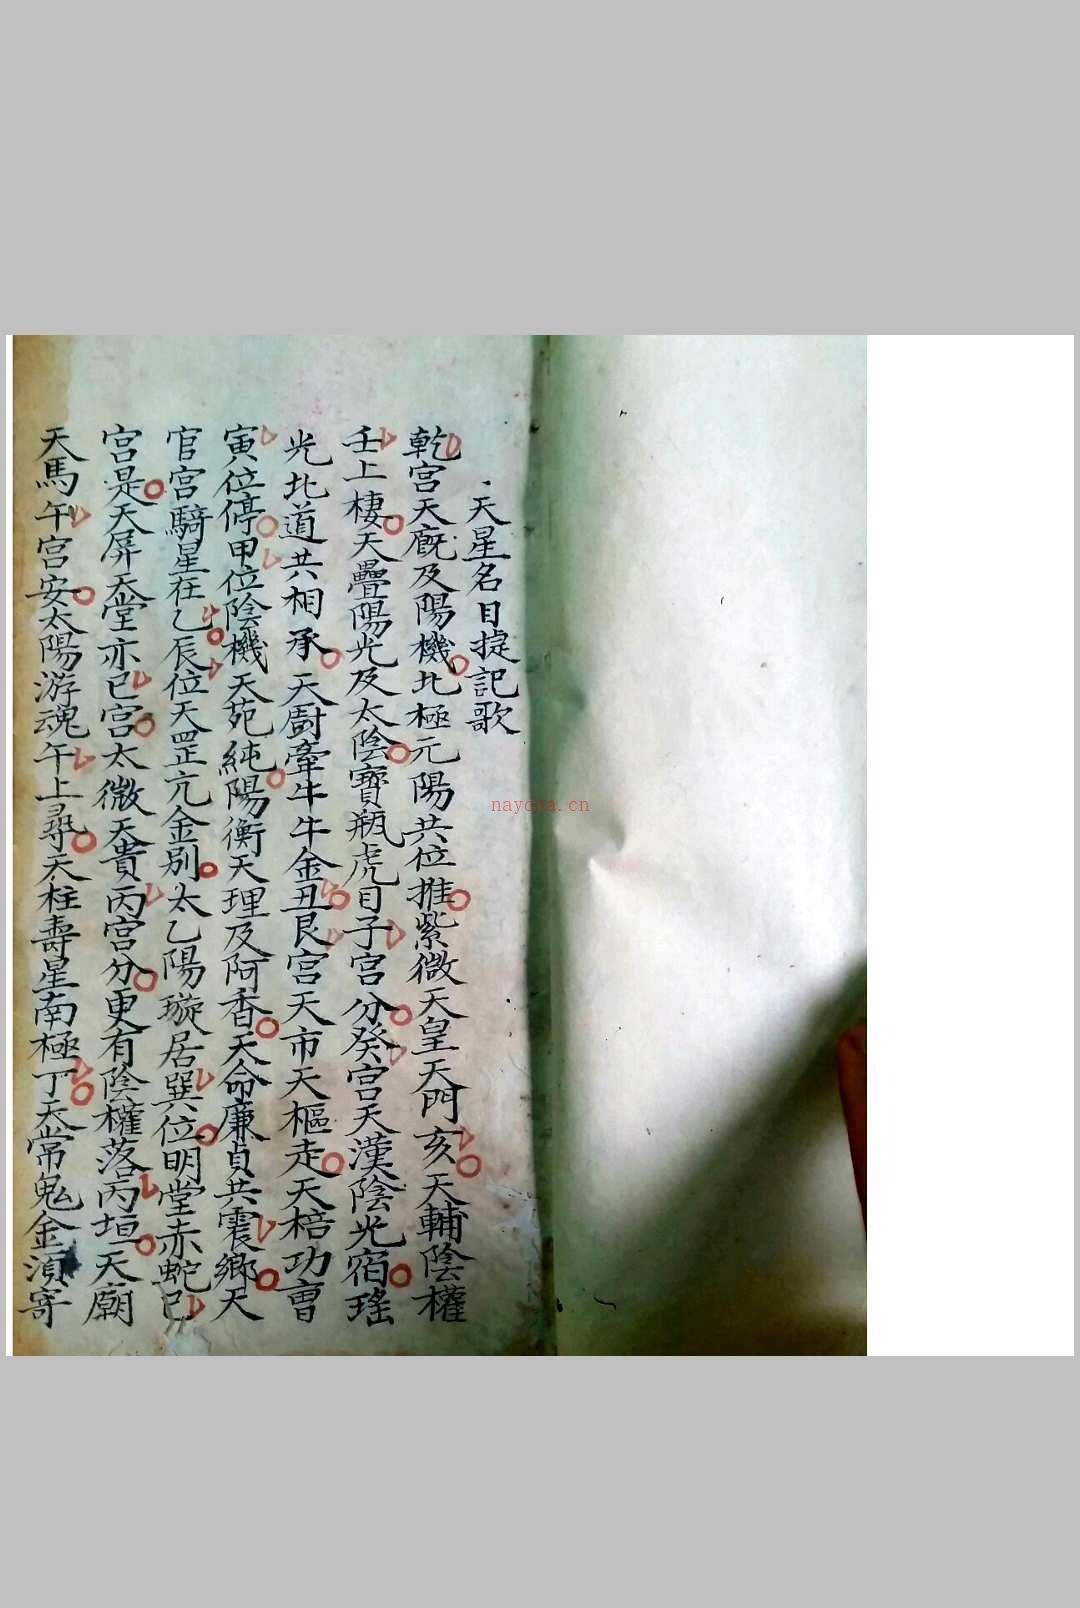 天星名目㨗記歌
乾宮天廐及陽機北極元陽共位推紫微天皇天門亥天輔陰權
壬上棲天疊陽光及太陰寶瓶虎目子宮分癸宮天漢陰光宿瑤
光北道共相承天厨牽牛牛金丑艮宮天市天樞走天棓功曹
寅位停甲位陰機天苑純陽衡天理及阿香天命廉貞共震鄉天
官宮騎星在乙辰位天罡亢金別太乙陽璇居巽位明堂赤蛇巳
宮是天屏天堂亦巳宮太微天貴丙宮分更有陰權落丙垣天廟
天馬午宮安太陽游魂午上尋天柱壽星南極丁天常鬼金須寄
nayona.cn